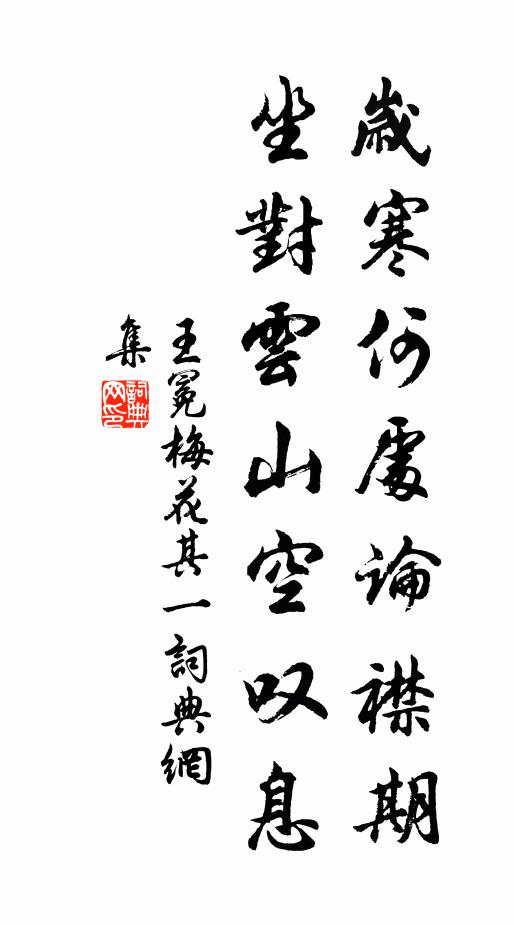 歲寒何處論襟期
坐對雲山空叹息
王冕梅花其一詞典網
集
詞典
网印